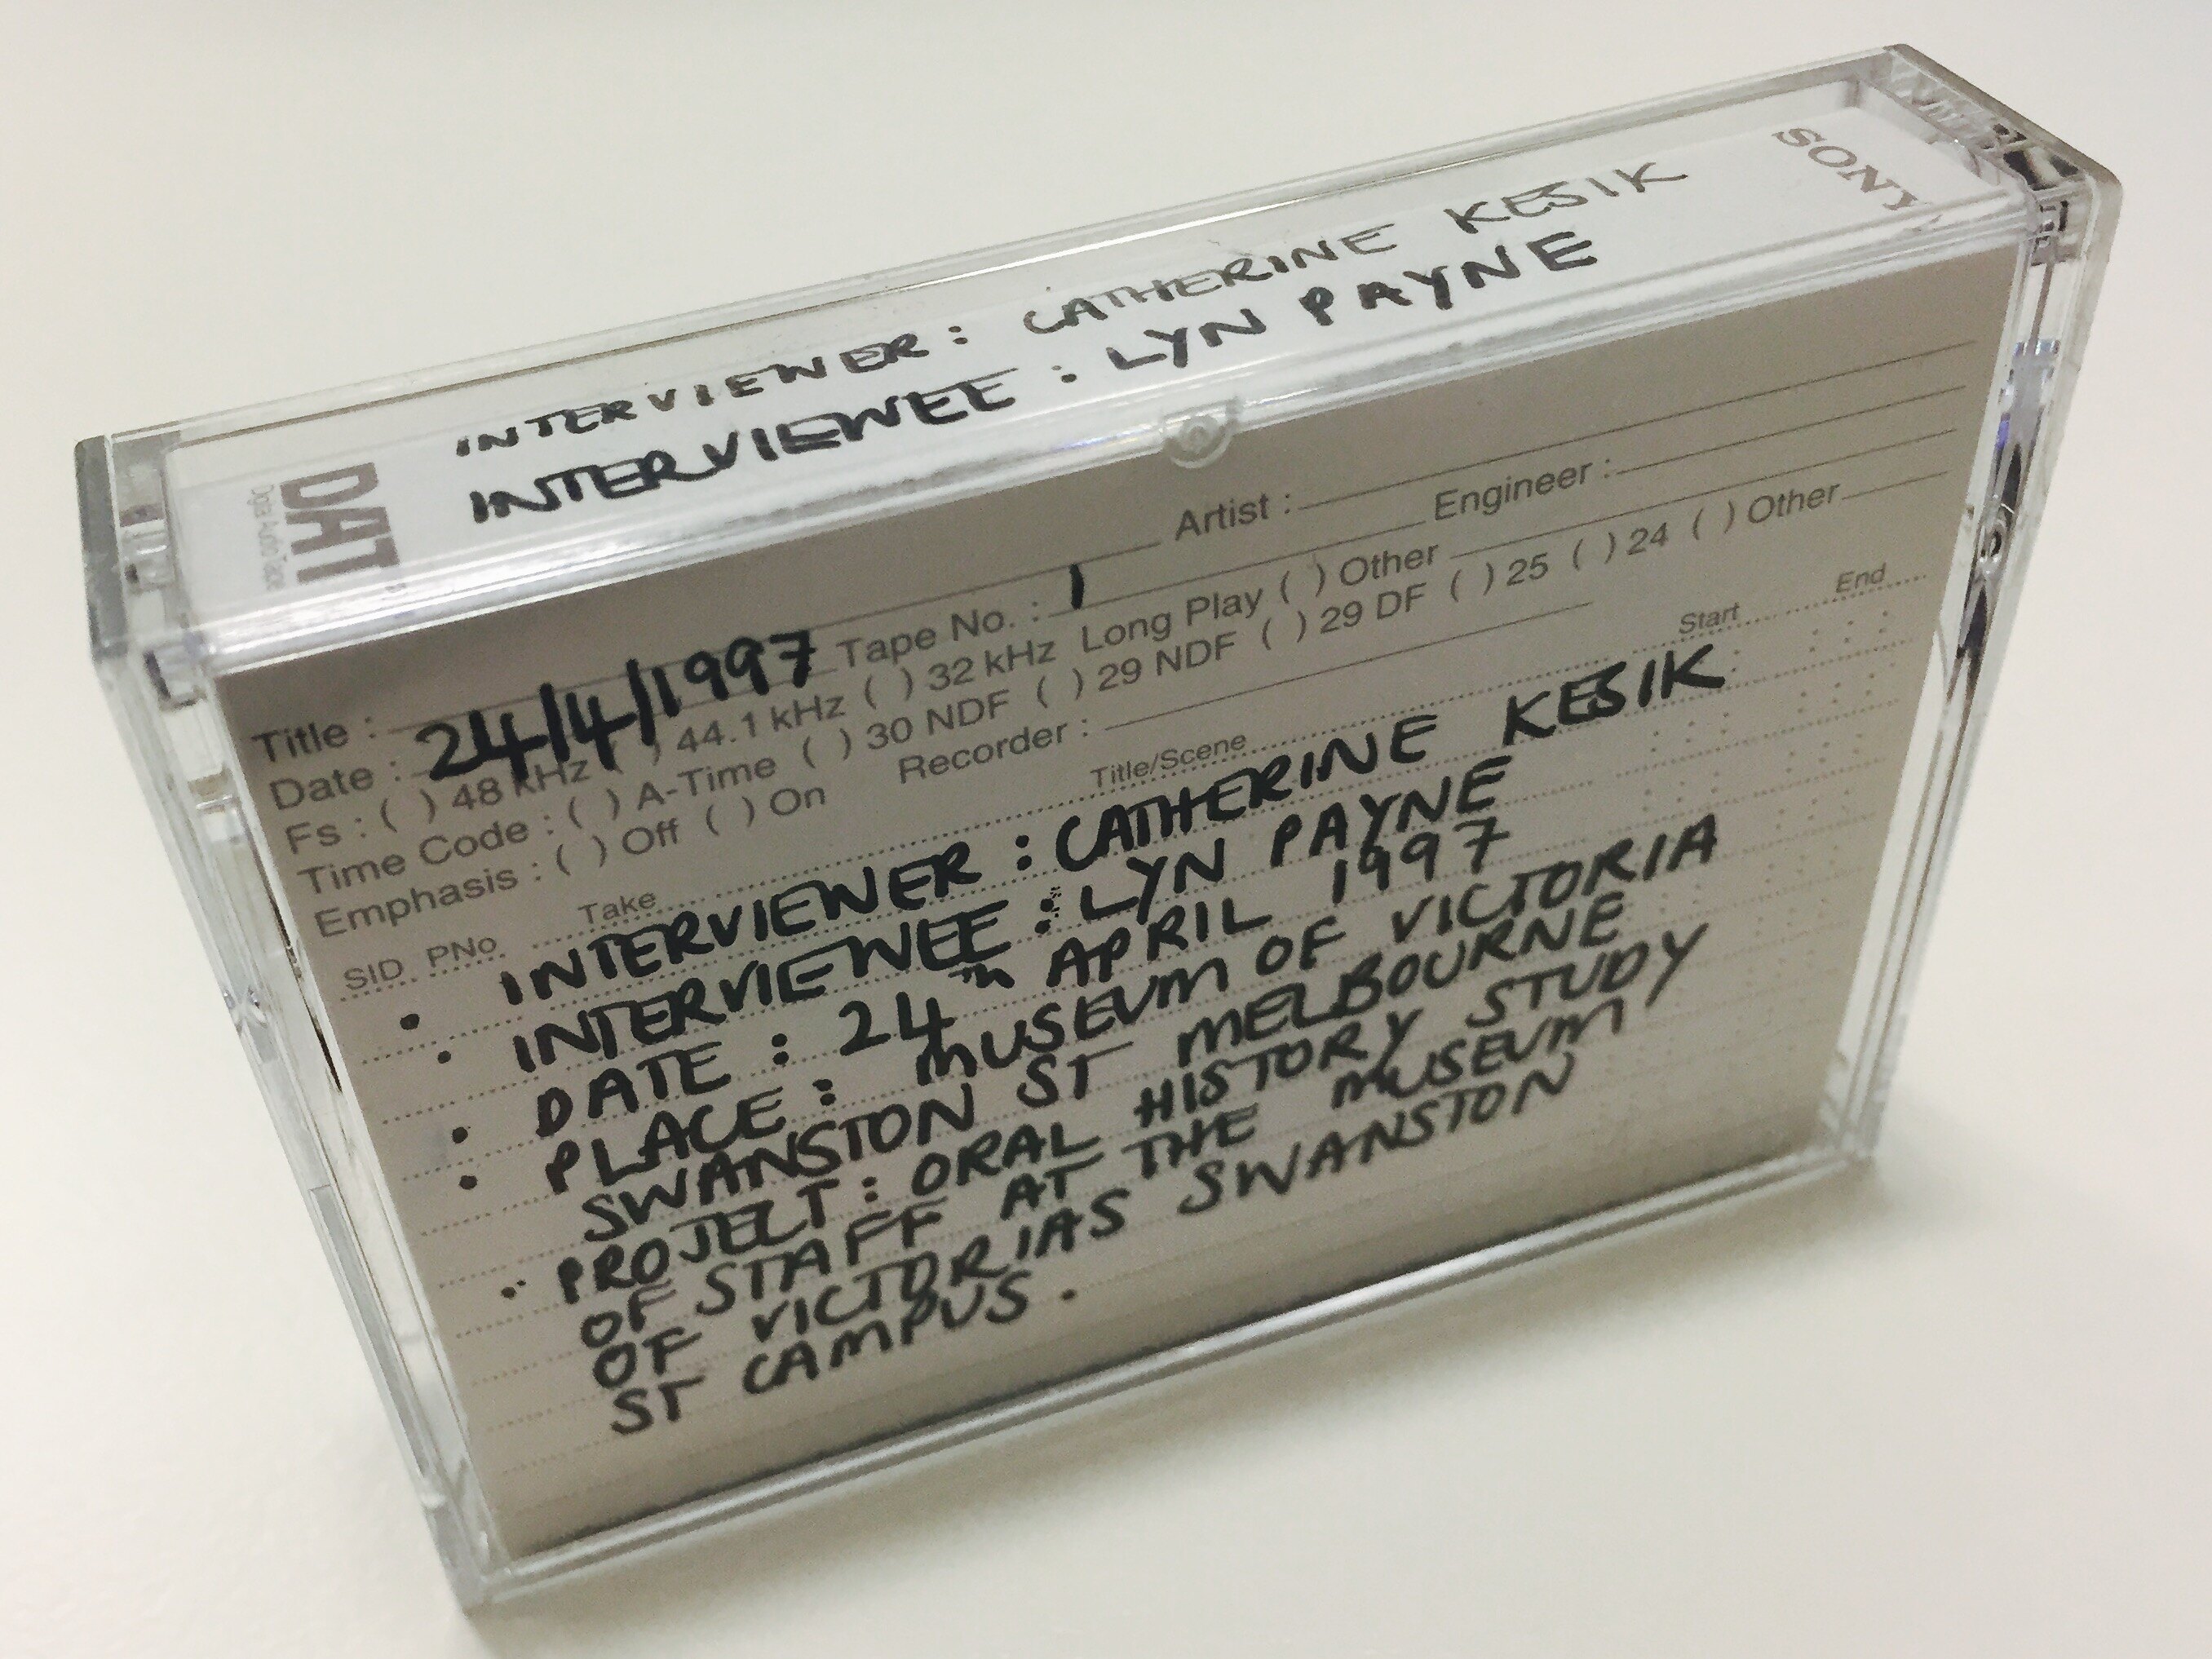 SONY
INTERVIEWER: CATHERINE KESIK
INTERVIEWEE: LYN PAYNE
DAT
Digital Audio Tape
Title: Artist:
Date: 24/4/1997 Tape No.: 1 Engineer:
Fs: ( ) 48 kHz ( ) 44.1 kHz ( ) 32 kHz Long Play ( ) Other
Time Code: ( ) A-Time ( ) 30 NDF ( ) 29 NDF ( ) 29 DF ( ) 25 ( ) 24 ( ) Other
Emphasis: ( ) Off ( ) On Recorder:
SID PNo Take Title/Scene Start End
• INTERVIEWER: CATHERINE KESIK
• INTERVIEWEE: LYN PAYNE
• DATE: 24th APRIL 1997
• PLACE: MUSEUM OF VICTORIA
SWANSTON ST MELBOURNE
• PROJECT: ORAL HISTORY STUDY
OF STAFF AT THE MUSEUM
OF VICTORIAS SWANSTON
ST CAMPUS.